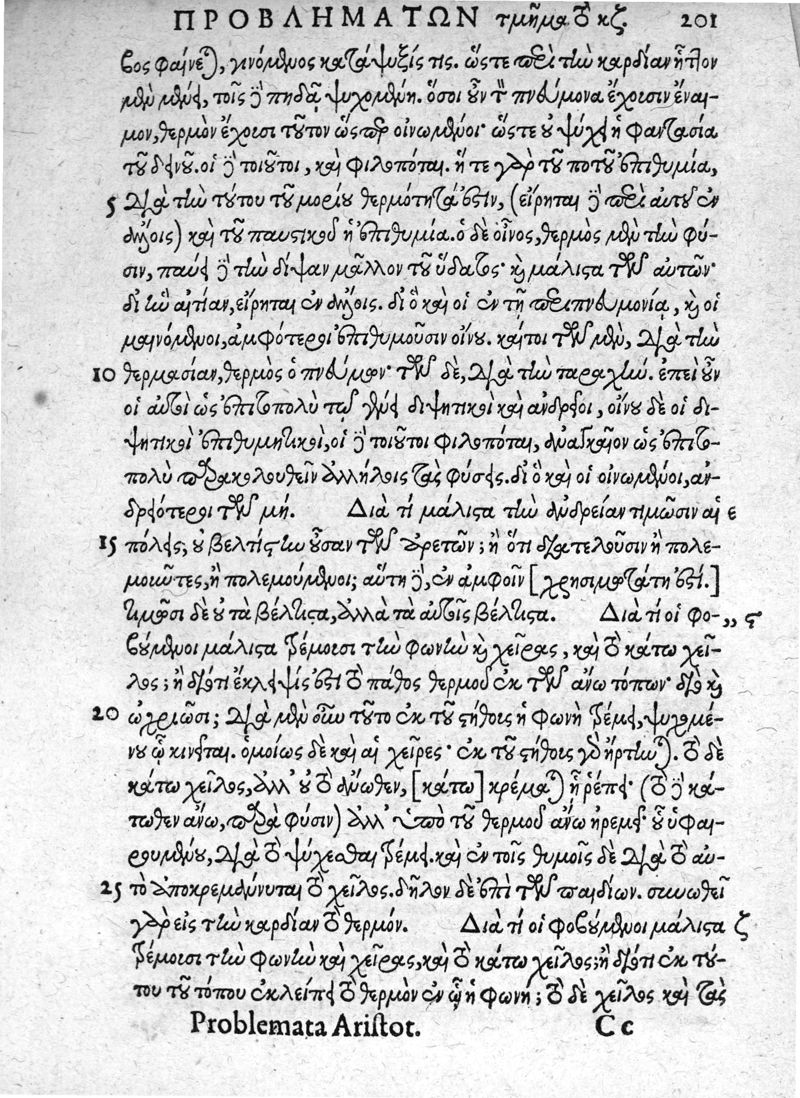 ΠΡΟΒΛΗΜΑΤΩΝ τμῆμα τὸ κζ. 201
βος φαίνεται, γινόμενος κατάψυξίς τις. ὥστε περὶ τὴν καρδίαν ἧττον
μὲν μένει, τοῖς δὲ πηδᾷ ψυχομένη. ὅσοι οὖν τὸν πνεύμονα ἔχουσιν ἔναι-
μον, θερμὸν ἔχουσι τοῦτον ὥσπερ οἰνωμένοι· ὥστε οὐ ψύχει ἡ φαντασία
τοῦ δεινοῦ. οἱ δὲ τοιοῦτοι, καὶ φιλοπόται. ἥ τε γὰρ τοῦ ποτοῦ ἐπιθυμία,
5 διὰ τὴν τούτου τοῦ μορίου θερμότητά ἐστιν, (εἴρηται δὲ περὶ αὐτοῦ ἐν
ἄλλοις) καὶ τοῦ παυστικοῦ ἡ ἐπιθυμία. ὁ δὲ οἶνος, θερμὸς μὲν τὴν φύ-
σιν, παύει δὲ τὴν δίψαν μᾶλλον τοῦ ὕδατος· καὶ μάλιστα τῶν αὐτῶν·
δι' ἣν αἰτίαν, εἴρηται ἐν ἄλλοις. δι' ὃ καὶ οἱ ἐν τῇ περιπνευμονίᾳ, καὶ οἱ
μαινόμενοι, ἀμφότεροι ἐπιθυμοῦσιν οἴνου. καίτοι τῶν μὲν, διὰ τὴν
10 θερμασίαν, θερμὸς ὁ πνεύμων· τῶν δὲ, διὰ τὴν ταραχήν. ἐπεὶ οὖν
οἱ αὐτοὶ ὡς ἐπιτοπολὺ τῷ γένει διψητικοὶ καὶ ἀνδρεῖοι, οἴνου δὲ οἱ δι-
ψητικοὶ ἐπιθυμητικοὶ, οἱ δὲ τοιοῦτοι φιλοπόται, ἀναγκαῖον ὡς ἐπιτο-
πολὺ παρακολουθεῖν ἀλλήλοις τὰς φύσεις. δι' ὃ καὶ οἱ οἰνωμένοι, ἀν-
δρειότεροι τῶν μή. Διὰ τί μάλιστα τὴν ἀνδρείαν τιμῶσιν αἱ ε
15 πόλεις, οὐ βελτίστην οὖσαν τῶν ἀρετῶν; ἢ ὅτι διατελοῦσιν ἢ πολε-
μοιῶτες, ἢ πολεμούμενοι; αὕτη δὲ, ἐν ἀμφοῖν [χρησιμωτάτη ἐστί.]
τιμῶσι δὲ οὐ τὰ βέλτιστα, ἀλλὰ τὰ αὐτοῖς βέλτιστα. Διὰ τί οἱ φο- ,, ϛ
βούμενοι μάλιστα τρέμουσι τὴν φωνὴν καὶ χεῖρας, καὶ τὸ κάτω χεῖ-
λος; ἢ διότι ἔκλειψίς ἐστι τὸ πάθος θερμοῦ ἐκ τῶν ἄνω τόπων· διὸ καὶ
20 ὠχριῶσι; διὰ μὲν οὖν τοῦτο ἐκ τοῦ στήθους ἡ φωνὴ τρέμει, ψυχομέ-
νου ᾧ κινεῖται. ὁμοίως δὲ καὶ αἱ χεῖρες· ἐκ τοῦ στήθους γὰρ ἤρτηνται. τὸ δὲ
κάτω χεῖλος, ἀλλ' οὐ τὸ ἄνωθεν, [κάτω] κρέμαται ᾗ ῥέπει· (τὸ δὲ κά-
τωθεν ἄνω, παρὰ φύσιν) ἀλλ' ὑπὸ τοῦ θερμοῦ ἄνω ἠρεμεῖ· οὗ ὑφαι-
ρουμένου, διὰ τὸ ψύχεσθαι τρέμει. καὶ ἐν τοῖς θυμοῖς δὲ διὰ τὸ αὐ-
25 τὸ ἀποκρεμάννυται τὸ χεῖλος. δῆλον δὲ ἐπὶ τῶν παιδίων. συνωθεῖ
γὰρ εἰς τὴν καρδίαν τὸ θερμόν. Διὰ τί οἱ φοβούμενοι μάλιστα ζ
τρέμουσι τὴν φωνὴν καὶ χεῖρας, καὶ τὸ κάτω χεῖλος; ἢ διότι ἐκ τού-
του τοῦ τόπου ἐκλείπει τὸ θερμὸν ἐν ᾧ ἡ φωνή; τὸ δὲ χεῖλος καὶ τὰς
Problemata Aristot. Cc